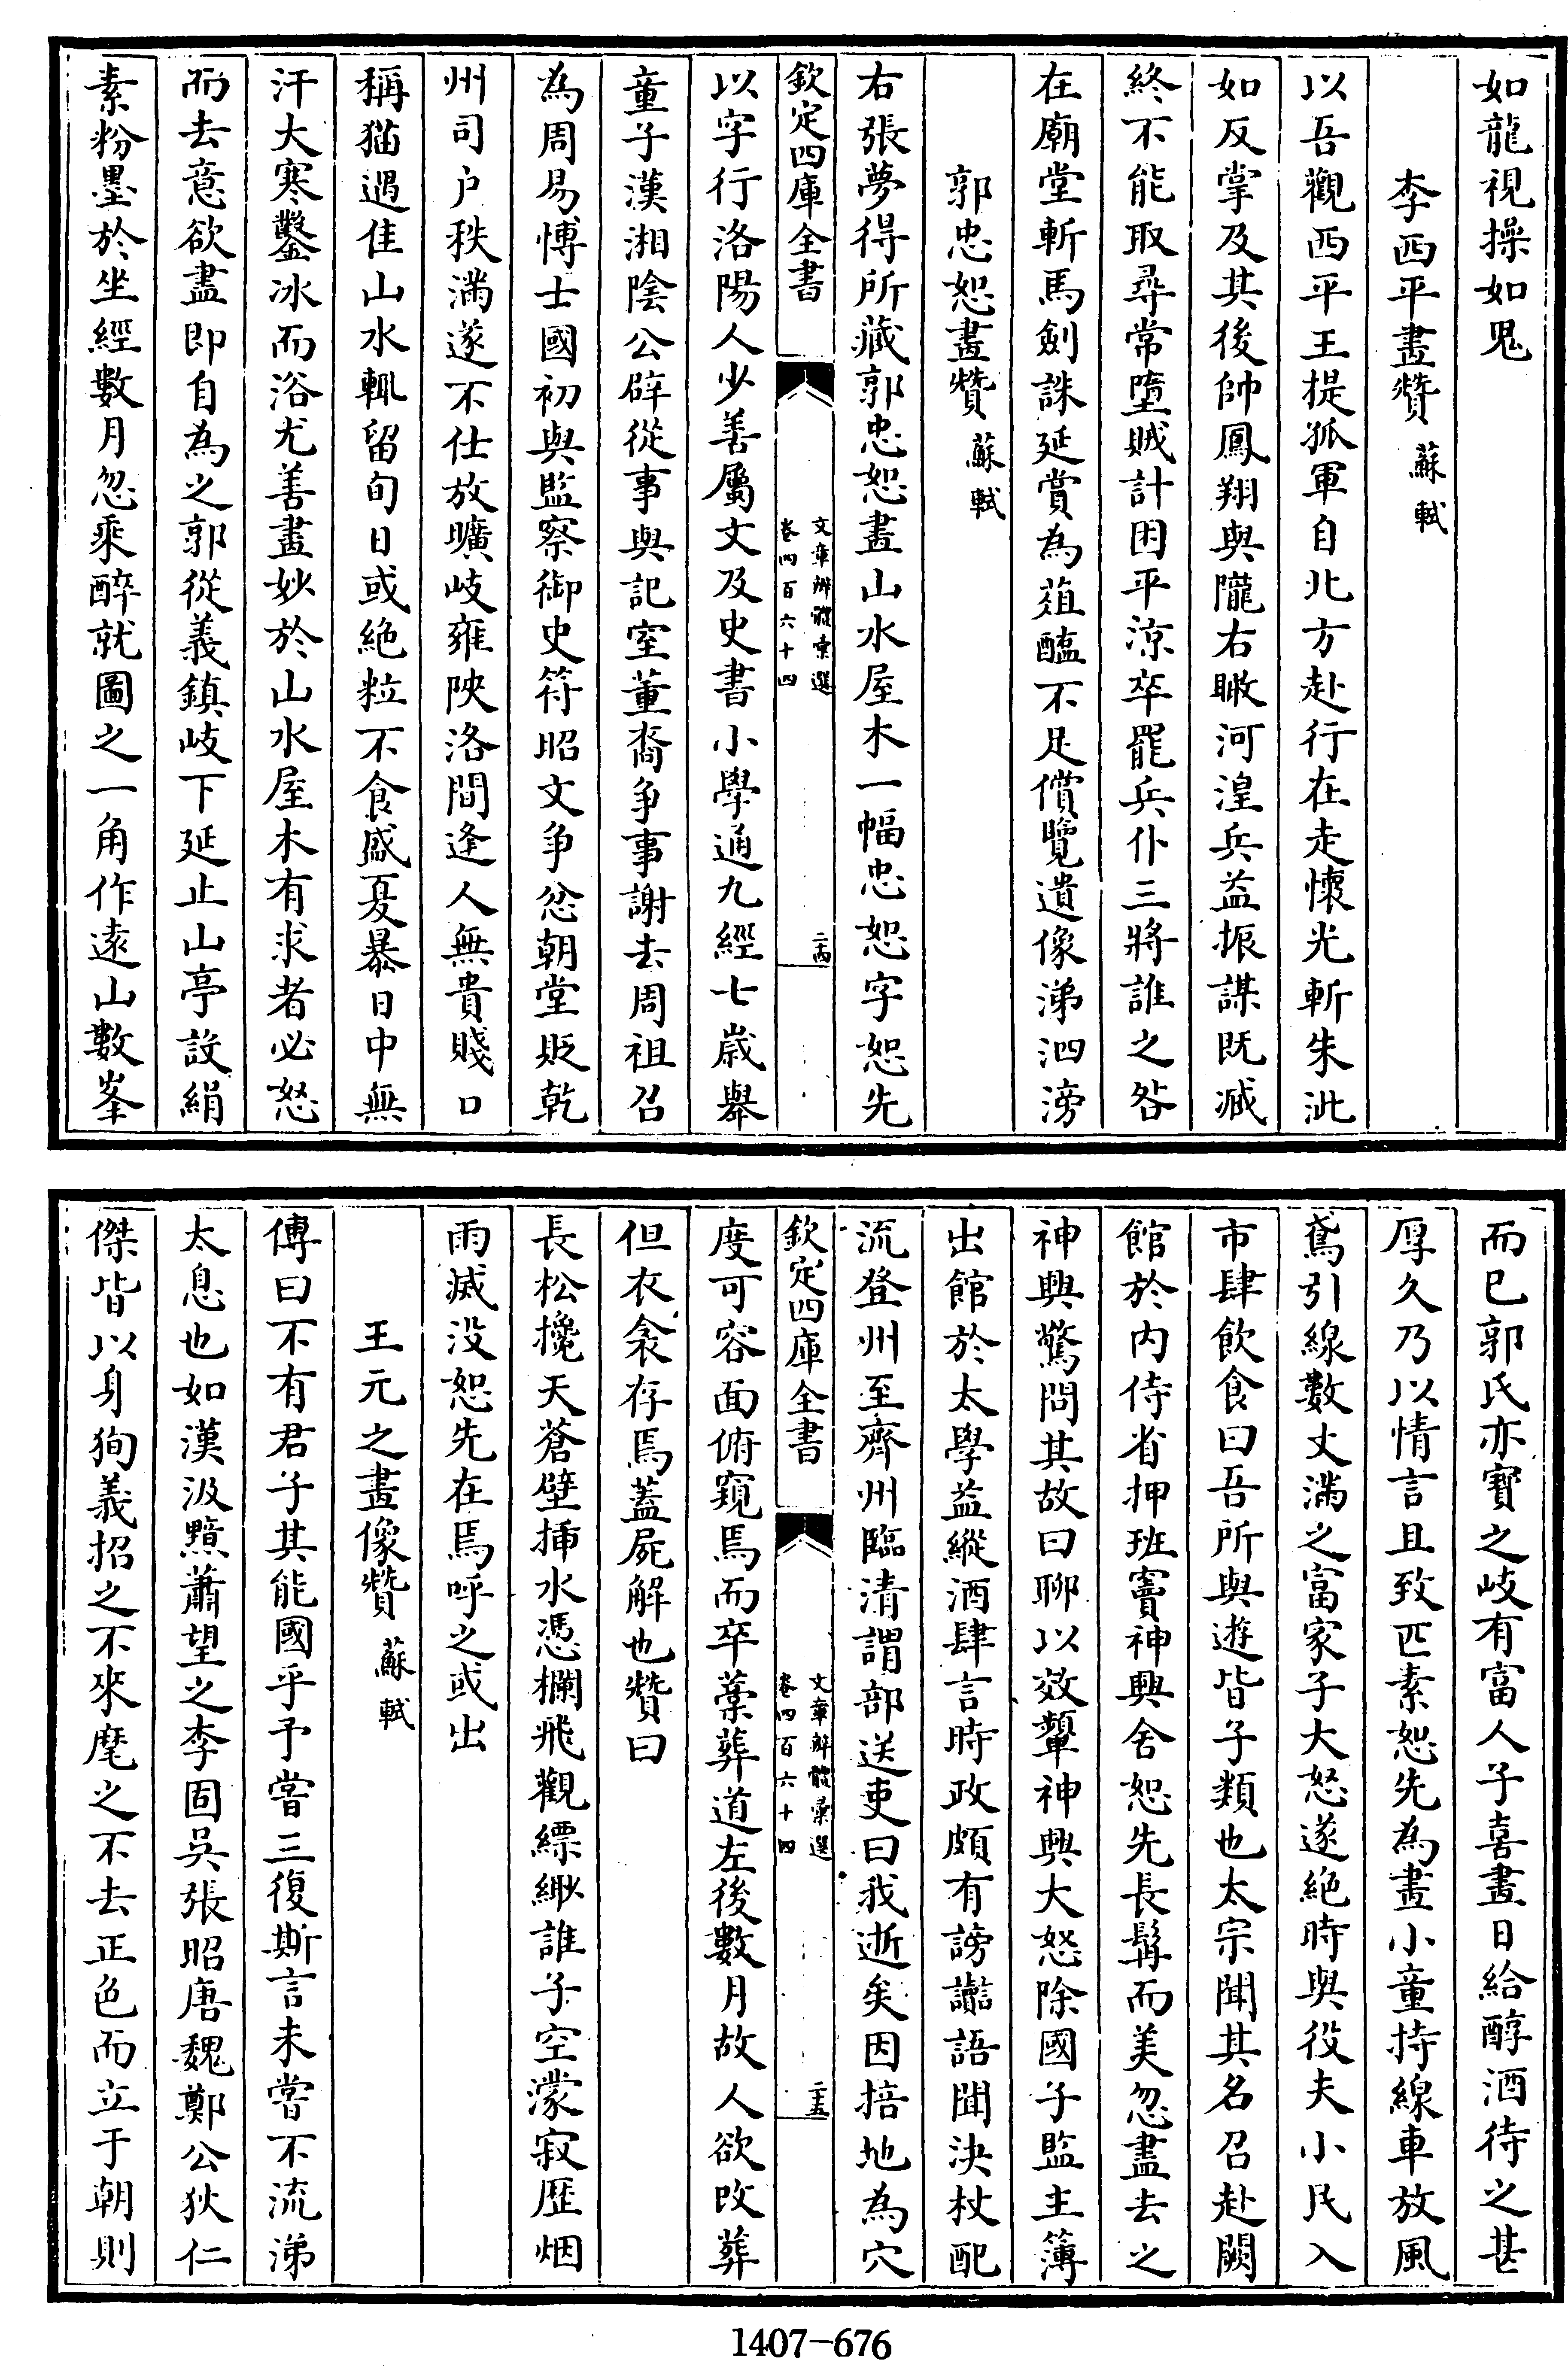 如龍視操如鬼
李西平畫贊 蘇軾
以吾觀西平王提孤軍自北方赴行在走懷光斬朱泚
如反掌及其後帥鳳翔與隴右瞰河湟兵益振謀既臧
終不能取尋常墮賊計困平涼卒罷兵仆三將誰之咎
在廟堂斬馬劍誅延賞為葅醢不足償覽遺像涕泗滂
郭忠恕畫贊 蘇軾
右張夢得所藏郭忠恕畫山水屋木一幅忠恕字恕先
欽定四庫全書 文章辨體彙選 卷四百六十四 二十四
以字行洛陽人少善屬文及史書小學通九經七歲舉
童子漢湘陰公辟從事與記室董裔爭事謝去周祖召
為周易博士國初與監察御史符昭文爭忿朝堂貶乾
州司户秩滿遂不仕放曠岐雍陝洛間逢人無貴賤口
稱猫遇佳山水輒留旬日或絶粒不食盛夏暴日中無
汗大寒鑿冰而浴尤善畫妙於山水屋木有求者必怒
而去意欲畫即自為之郭從義鎮岐下延止山亭設絹
素粉墨於坐經數月忽乘醉就圖之一角作逺山數峯
而已郭氏亦寳之岐有富人子喜畫日給醇酒待之甚
厚久乃以情言且致匹素恕先為畫小童持線車放風
鳶引線數丈滿之富家子大怒遂絶時與役夫小民入
市肆飲食曰吾所與遊皆子類也太宗聞其名召赴闕
館於内侍省押班竇神興舍恕先長髯而美忽盡去之
神興驚問其故曰聊以效顰神興大怒除國子監主簿
出館於太學益縱酒肆言時政頗有謗讟語聞決杖配
流登州至齊州臨清謂部送吏曰我逝矣因掊地為穴
欽定四庫全書 文章辨體彙選 卷四百六十四 二十五
度可容面俯窺焉而卒藁葬道左後數月故人欲改葬
但衣衾存焉蓋屍解也贊曰
長松攙天蒼壁插水憑欄飛觀縹緲誰子空濛寂歴烟
雨滅没恕先在焉呼之或出
王元之畫像贊 蘇軾
傳曰不有君子其能國乎予嘗三復斯言未嘗不流涕
太息也如漢汲黯蕭望之李固吳張昭唐魏鄭公狄仁
傑皆以身狥義招之不來麾之不去正色而立于朝則
1407-676